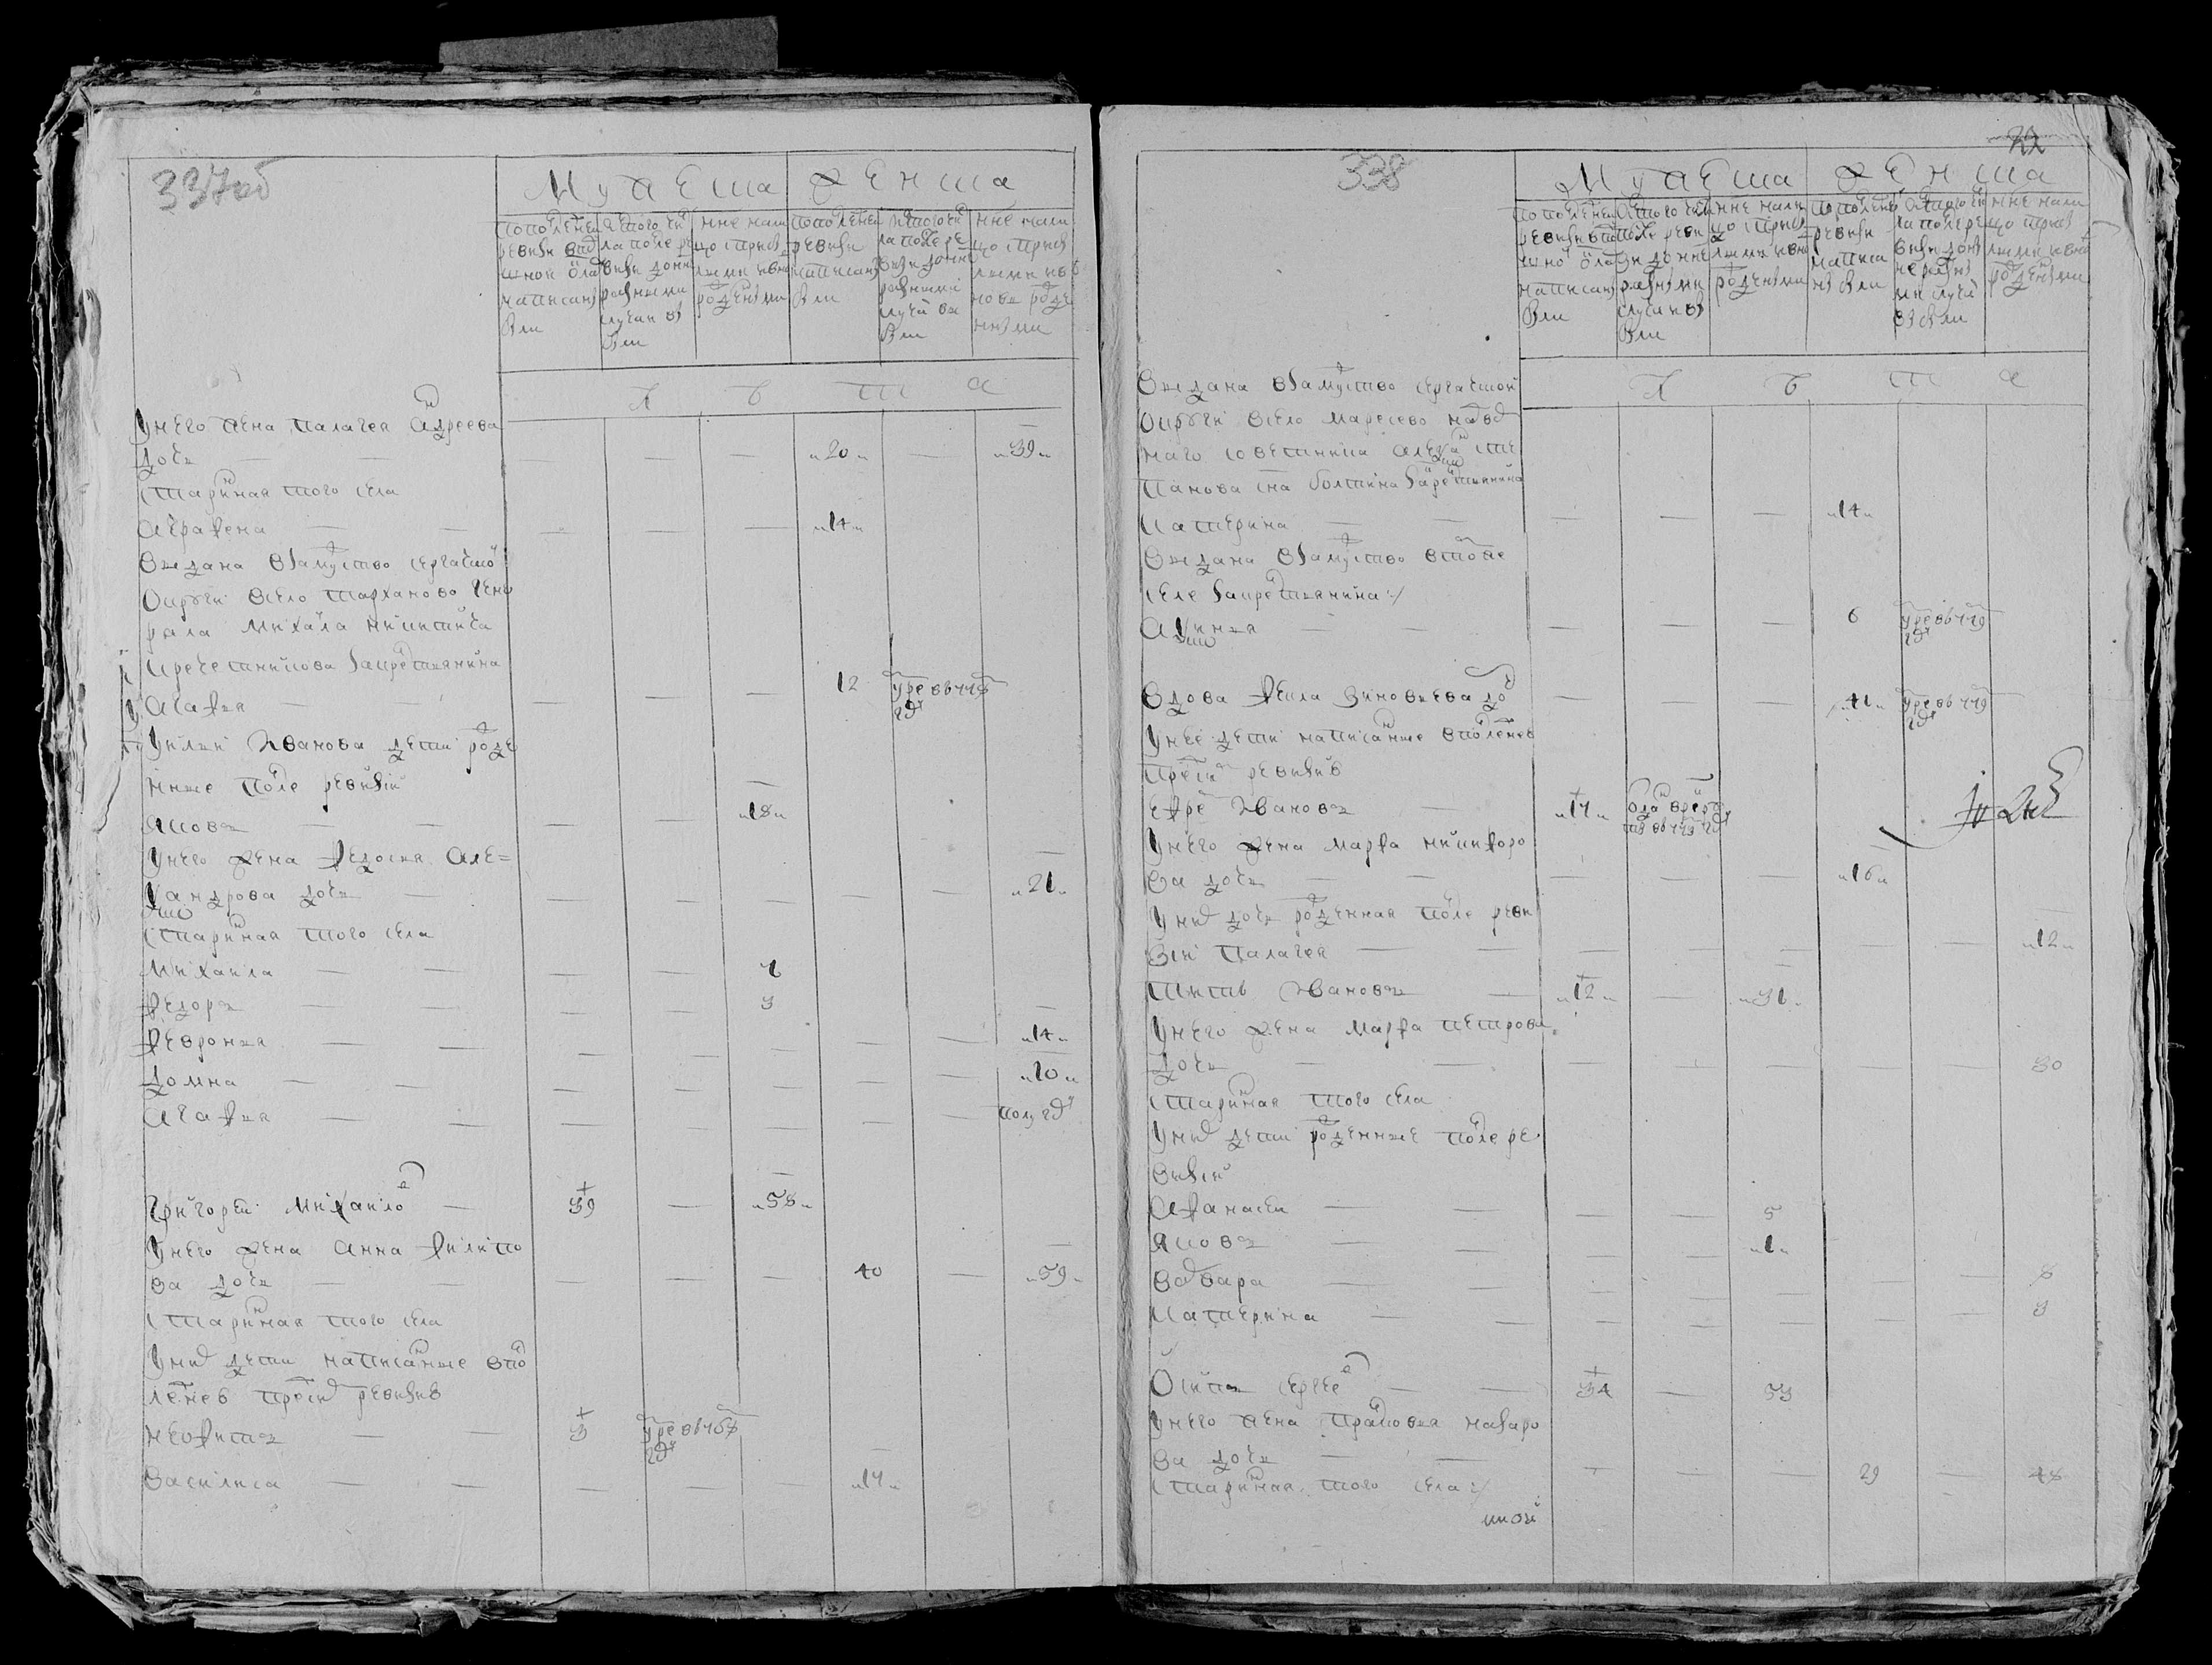 337об
Мужеска женска
По последней ревизии в подушной оклад написаны были
Из того числа после ревизии до ныне разными случаи выбыли
И ныне налицо с прибылыми и вновь рожденными
По последней ревизии написаны были
Из того числа после ревизии до ныне разными случаи выбыли
И ныне налицо с прибылыми и вновь рожденными
Л Ѣ т а
У него жена палагея андреева
дочь 20 39
старинная того села
аграфена 14
выдана взамужство сергацкой
округи всело тарханово гене
рала михаила никитича
кречетникова закрестьянина
агафья 12 умре в 778 году
У ильи Иванова дети рожде
нные после ревизии
яковъ 18
У него жена федосья але=
ксандрова дочь 21
старинная того села
михаила 7
федоръ 3
февронья 14
домна 10
агафья полугоду
Григорей михайлов 39 58
У него жена анна филипо
ва дочь 40 59
старинная того села
У них дети написанные впо
следней пред сим ревизиѣ
неофитъ 3 умре в 768 году
василиса 17
338
22
Мужеска женска
По последней ревизии в подушной оклад написаны были
Из того числа после ревизии до ныне разными случаи выбыли
И ныне налицо с прибылыми и вновь рожденными
По последней ревизии написаны были
Из того числа после ревизии до ныне разными случаи выбыли
И ныне налицо с прибылыми и вновь рожденными
Л Ѣ т а
выдана взамужство сергацкой
округи всело маресево надво
рнаго советника александра сте
панова сна болтина закрестьянина
катерина 14
выдана взамужство втомже
селе закрестьянина
аксинья 6 умре в 779 году
вдова фекла зиновьева дочь 41 умре в 779 году
У нее дети написанные впоследней
пред сим ревизиѣ
ефрем Ивановъ 17 отдан в рекруты в 773 году
У него жена марфа никифоро
ва дочь 16
У них дочь рожденная после реви
зии палагея 12
титъ Ивановъ 12 31
У него жена марфа петрова
дочь 30
старинная того села
У них дети рожденные после ре
визии
афанасей 5
яковъ 1
варвара 8
катерина 3
Осипъ сергеев 34 53
У него жена прасковья назаро
ва дочь 29 48
старинная того села